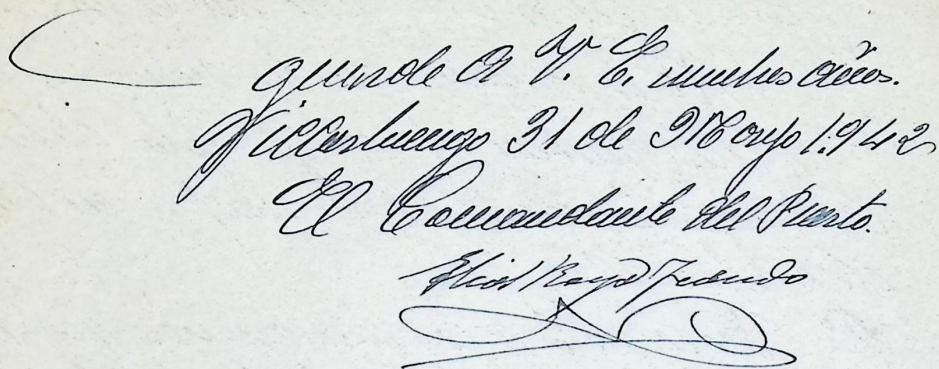 guarde a V. E. muchos años.
Villarluengo 31 de Mayo 1.942
El Comandante del Puesto.
Elias